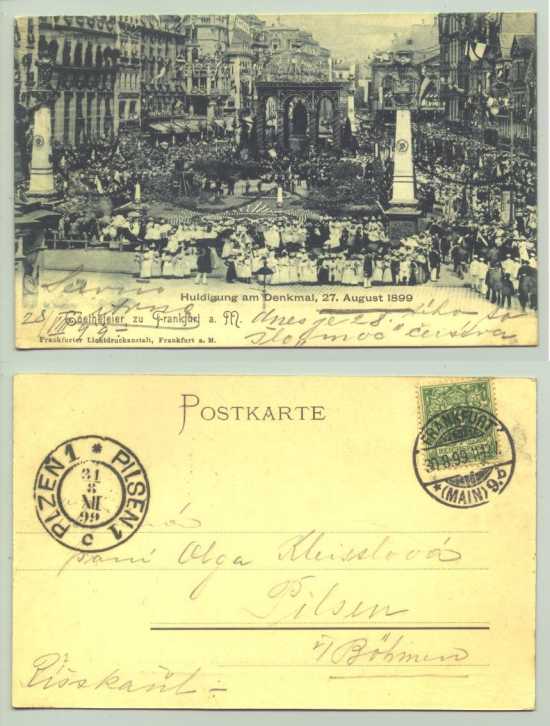 Huldigung am Denkmal, 27. August 1899
Servus
28/VIII 99 Goethefeier zu Frankfurt a. M.
dnes je 28. čerstva
Frankfurter Lichtdruckanstalt, Frankfurt a. M.
POSTKARTE
FRANKFURT
30.8.99.
*(MAIN) 9.b
PLZEN 1 * PILSEN 1
31
8
XII
99
c
paní Olga Kleisslová
Pilsen
i/ Böhmen